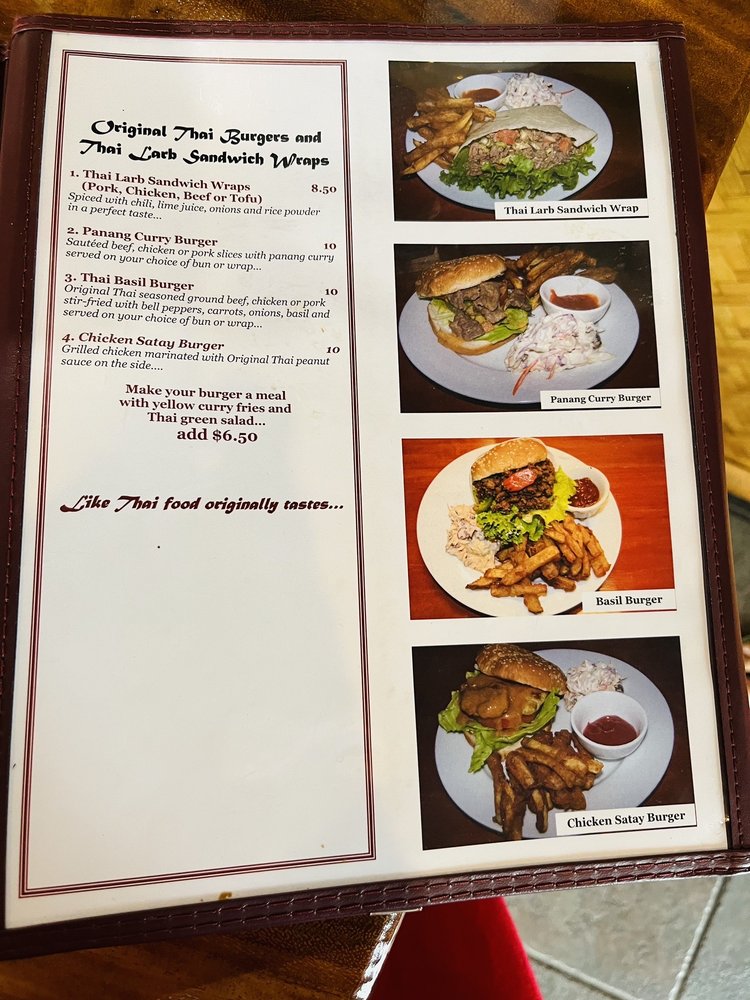 Original Thai Burgers and
Thai Larb Sandwich Wraps
1. Thai Larb Sandwich Wraps 8.50
(Pork, Chicken, Beef or Tofu)
Spiced with chili, lime juice, onions and rice powder
in a perfect taste...
2. Panang Curry Burger 10
Sautéed beef, chicken or pork slices with panang curry
served on your choice of bun or wrap...
3. Thai Basil Burger 10
Original Thai seasoned ground beef, chicken or pork
stir-fried with bell peppers, carrots, onions, basil and
served on your choice of bun or wrap...
4. Chicken Satay Burger 10
Grilled chicken marinated with Original Thai peanut
sauce on the side....
Make your burger a meal
with yellow curry fries and
Thai green salad...
add $6.50
Like Thai food originally tastes...
Thai Larb Sandwich Wrap
Panang Curry Burger
Basil Burger
Chicken Satay Burger